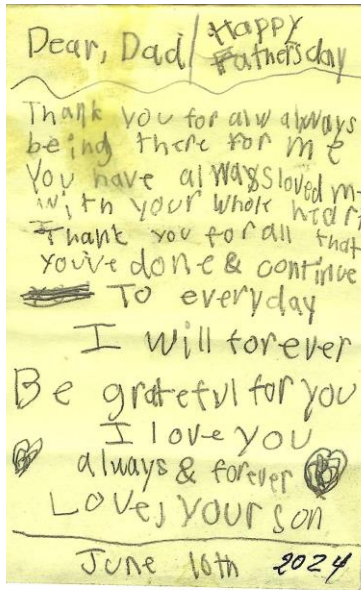 Dear, Dad / Happy
Fathersday
Thank you for alw always
being there for me
You have always loved m-
with your whole heart
Thank you for all that
you've done & continue
To everyday
I will forever
Be grateful for you
I love you
always & forever
Love, your son
June 16th 2024